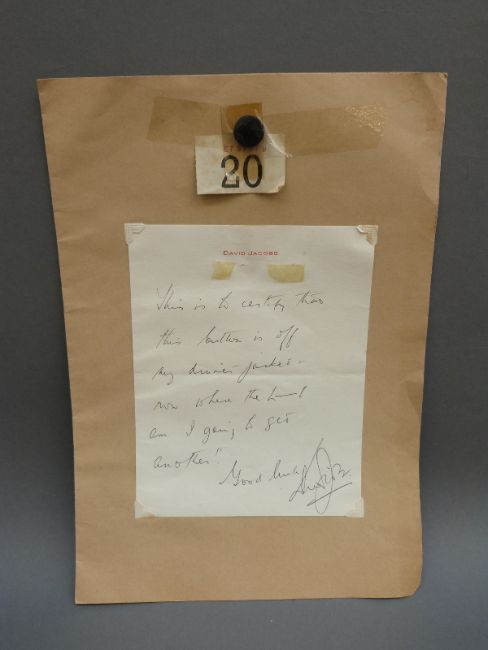 20
DAVID JACOBS
"This is to certify that
this button is off
my dinner jacket -
now where the
am I going to get
another"!
Good luck